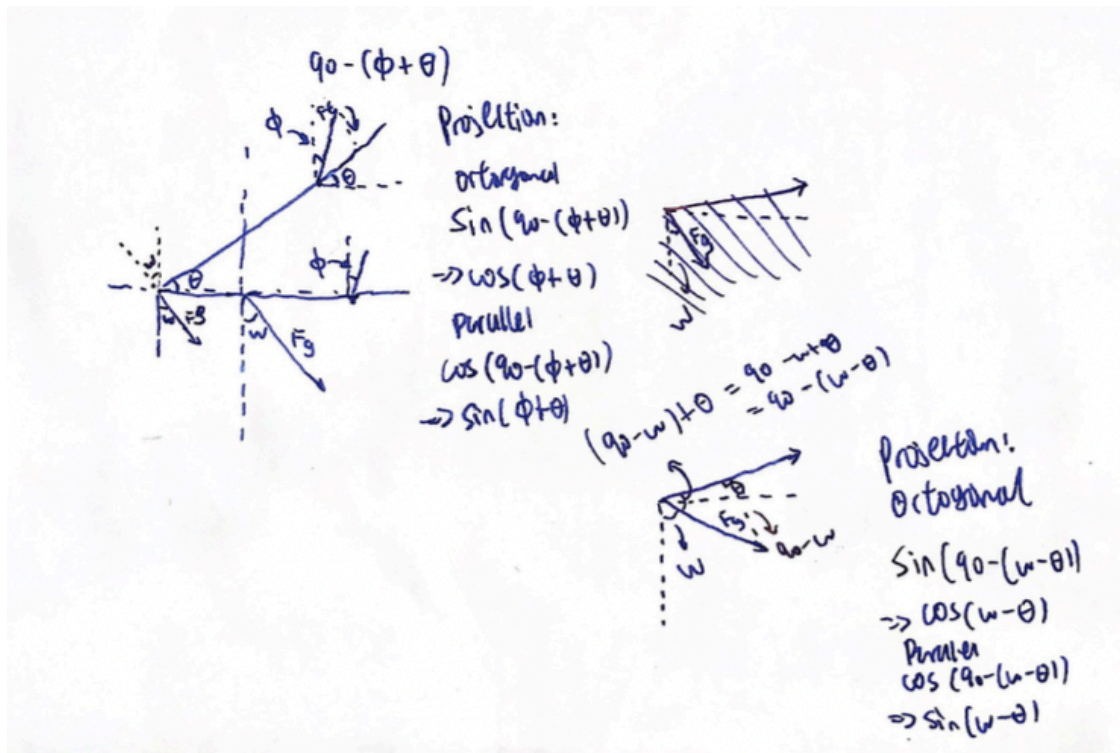 90-(ϕ+θ)
ϕ
θ
Projection:
ortogonal
Sin(90-(ϕ+θ))
=> cos(ϕ+θ)
parallel
cos(90-(ϕ+θ))
=> sin(ϕ+θ)
θ
ϕ
Fg
w
Fg
Fg
w
(90-w)+θ = 90-w+θ
= 90-(w-θ)
θ
Fg
90-w
w
Projection:
Ortogonal
Sin(90-(w-θ))
=> cos(w-θ)
Parallel
cos(90-(w-θ))
=> sin(w-θ)